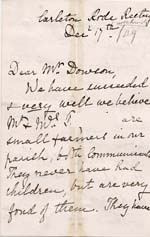 Carleton Rode Rectory
Dec 17th /89
Dear Mr Dowson,
We have succeeded
so very well we believe
Mr & Mrs F. are
small farmers in our
parish, both Communicants
They never have had
children, but are very
fond of them. They have